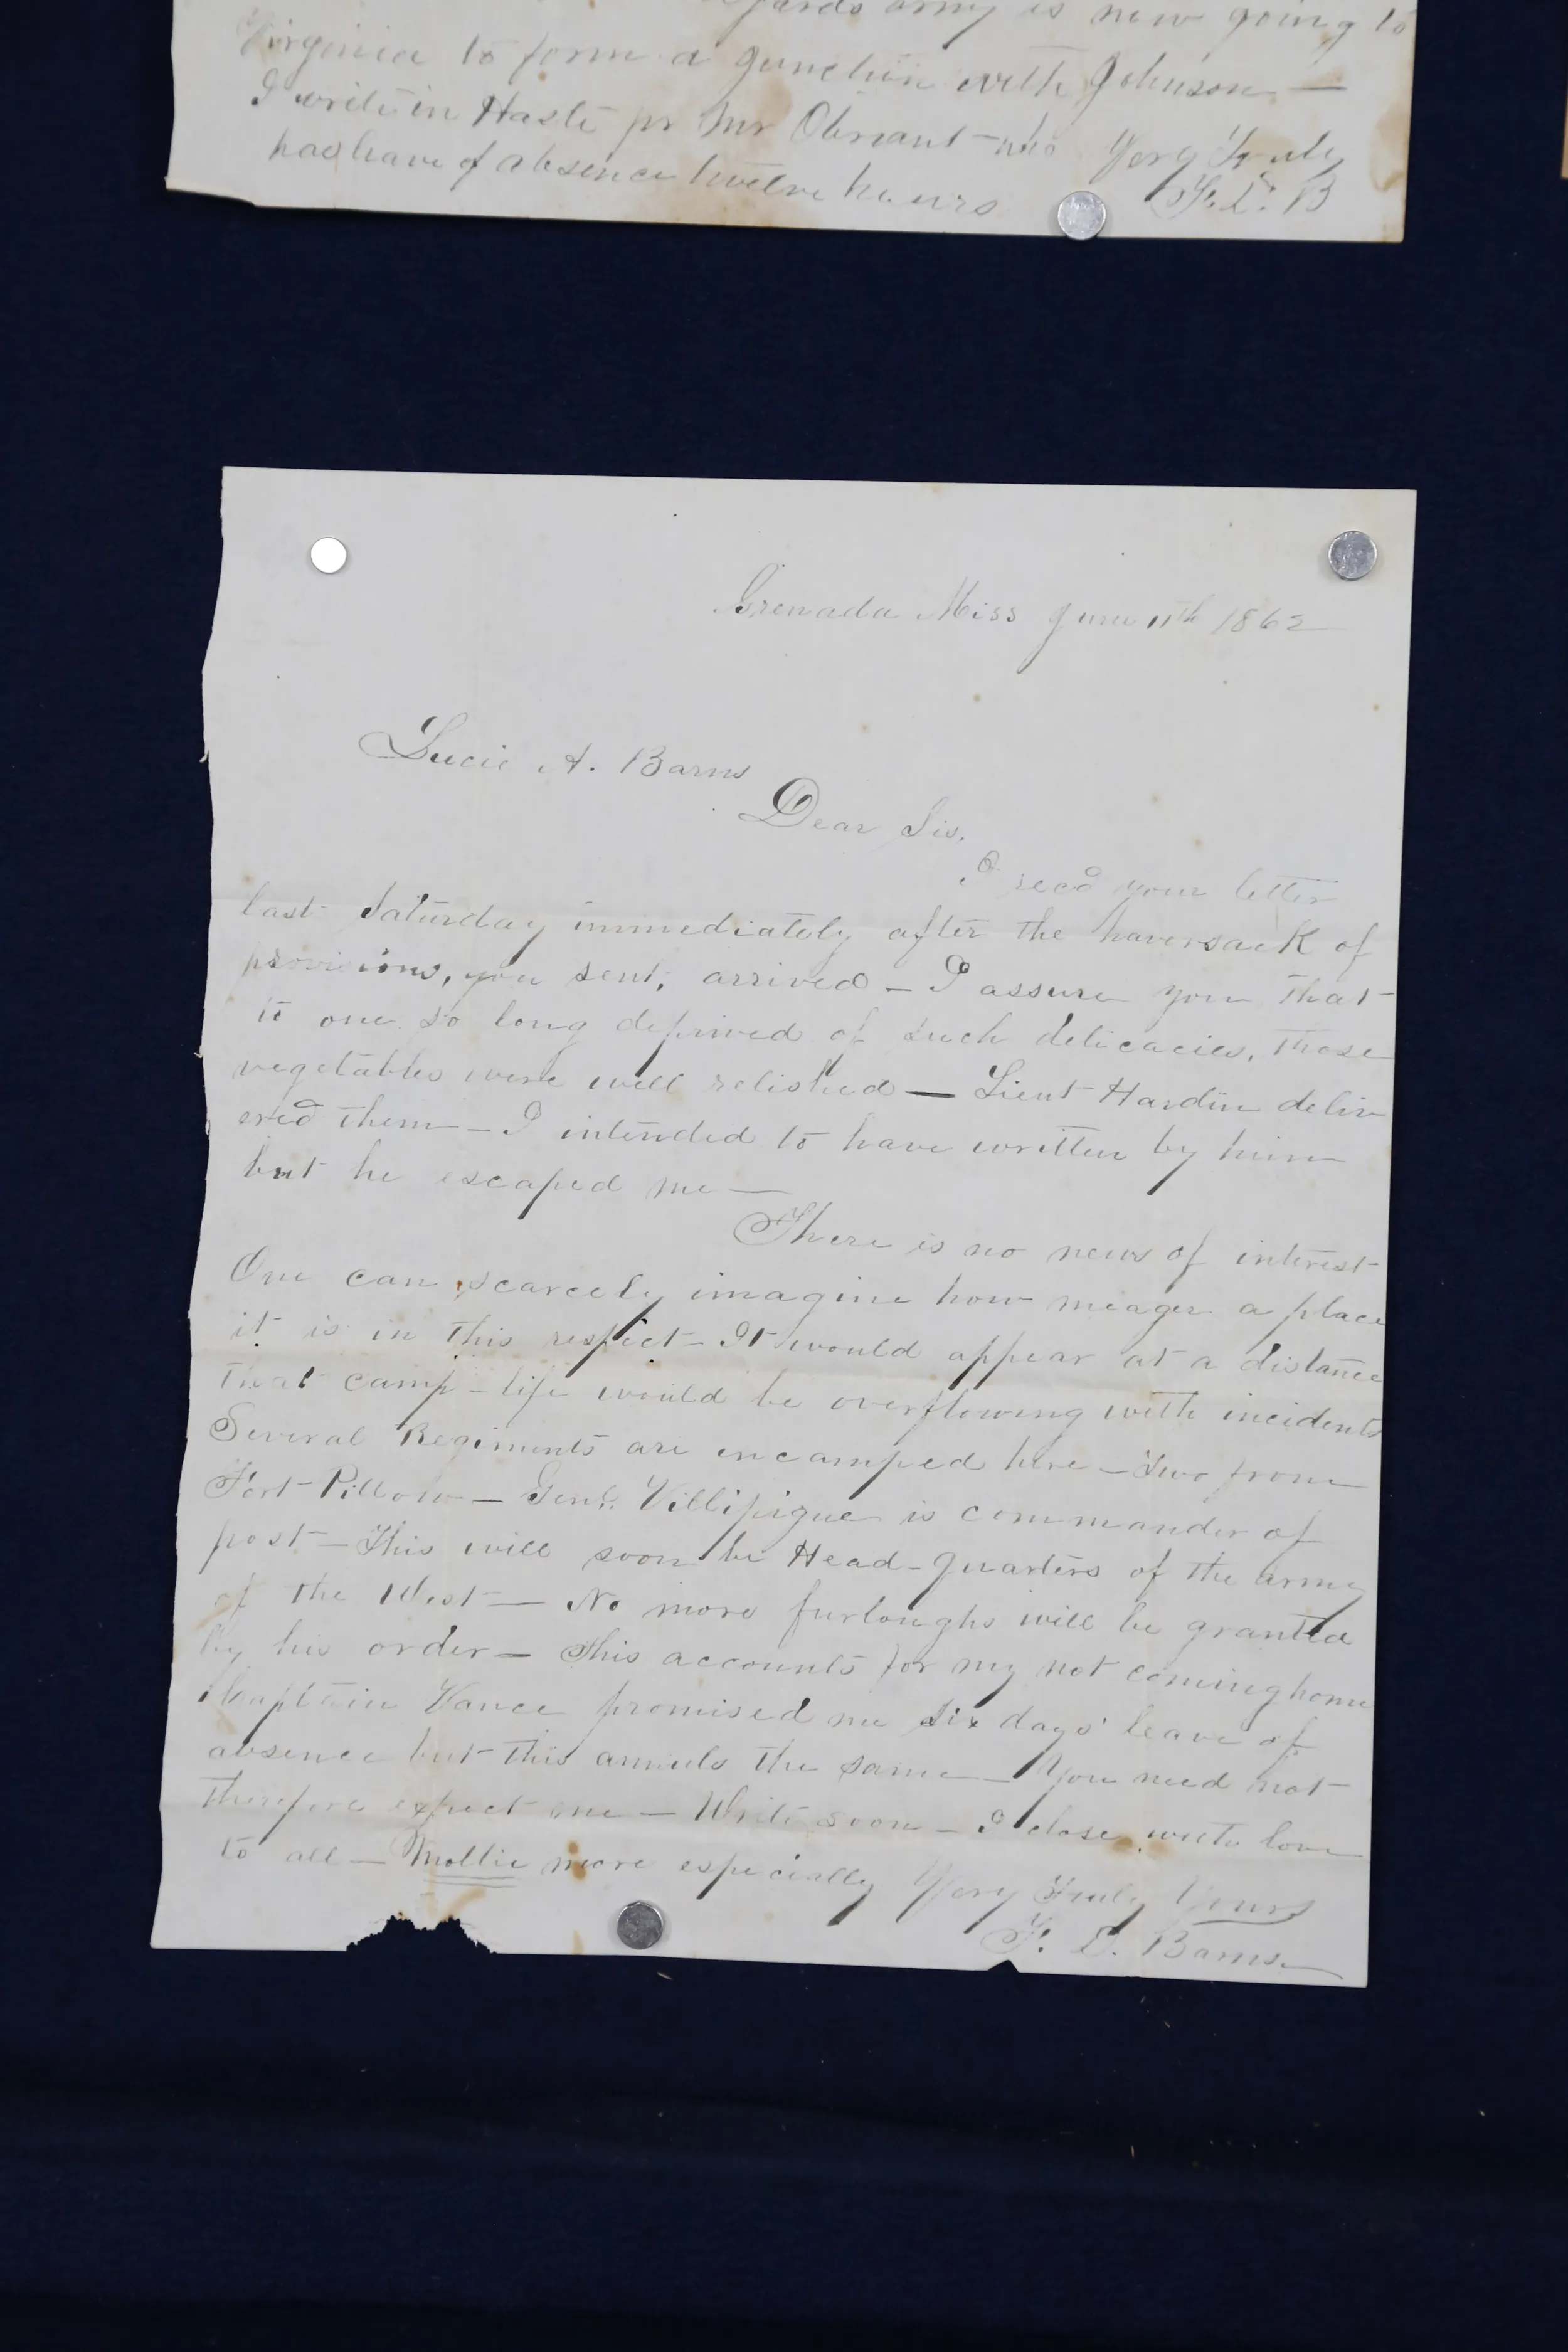 army is now going to
Virginia to form a junction with Johnson —
I write in Haste pr Mr Obriant — who Very Truly
has leave of absence twelve hours F. D. B
Grenada Miss June 11th 1862
Lucie A. Barns
Dear Sis,
I recd your letter
last Saturday immediately after the haversack of
provisions, you sent, arrived — I assure you that
to one so long deprived of such delicacies, those
vegetables were well relished — Lieut Hardin deliv
ered them — I intended to have written by him
but he escaped me —
There is no news of interest
One can scarcely imagine how meager a place
it is in this respect — It would appear at a distance
that camp-life would be overflowing with incidents
Several Regiments are encamped here — two from
Fort Pillow — Genl. Villipigue is commander of
post — This will soon be Head-quarters of the army
of the West — No more furloughs will be granted
by his order — This accounts for my not coming home
Captain Vance promised me six days' leave of
absence but this annuls the same — You need not
therefore expect me — Write soon — I close with love
to all — Mollie more especially Very Truly Yours
F. D. Barns